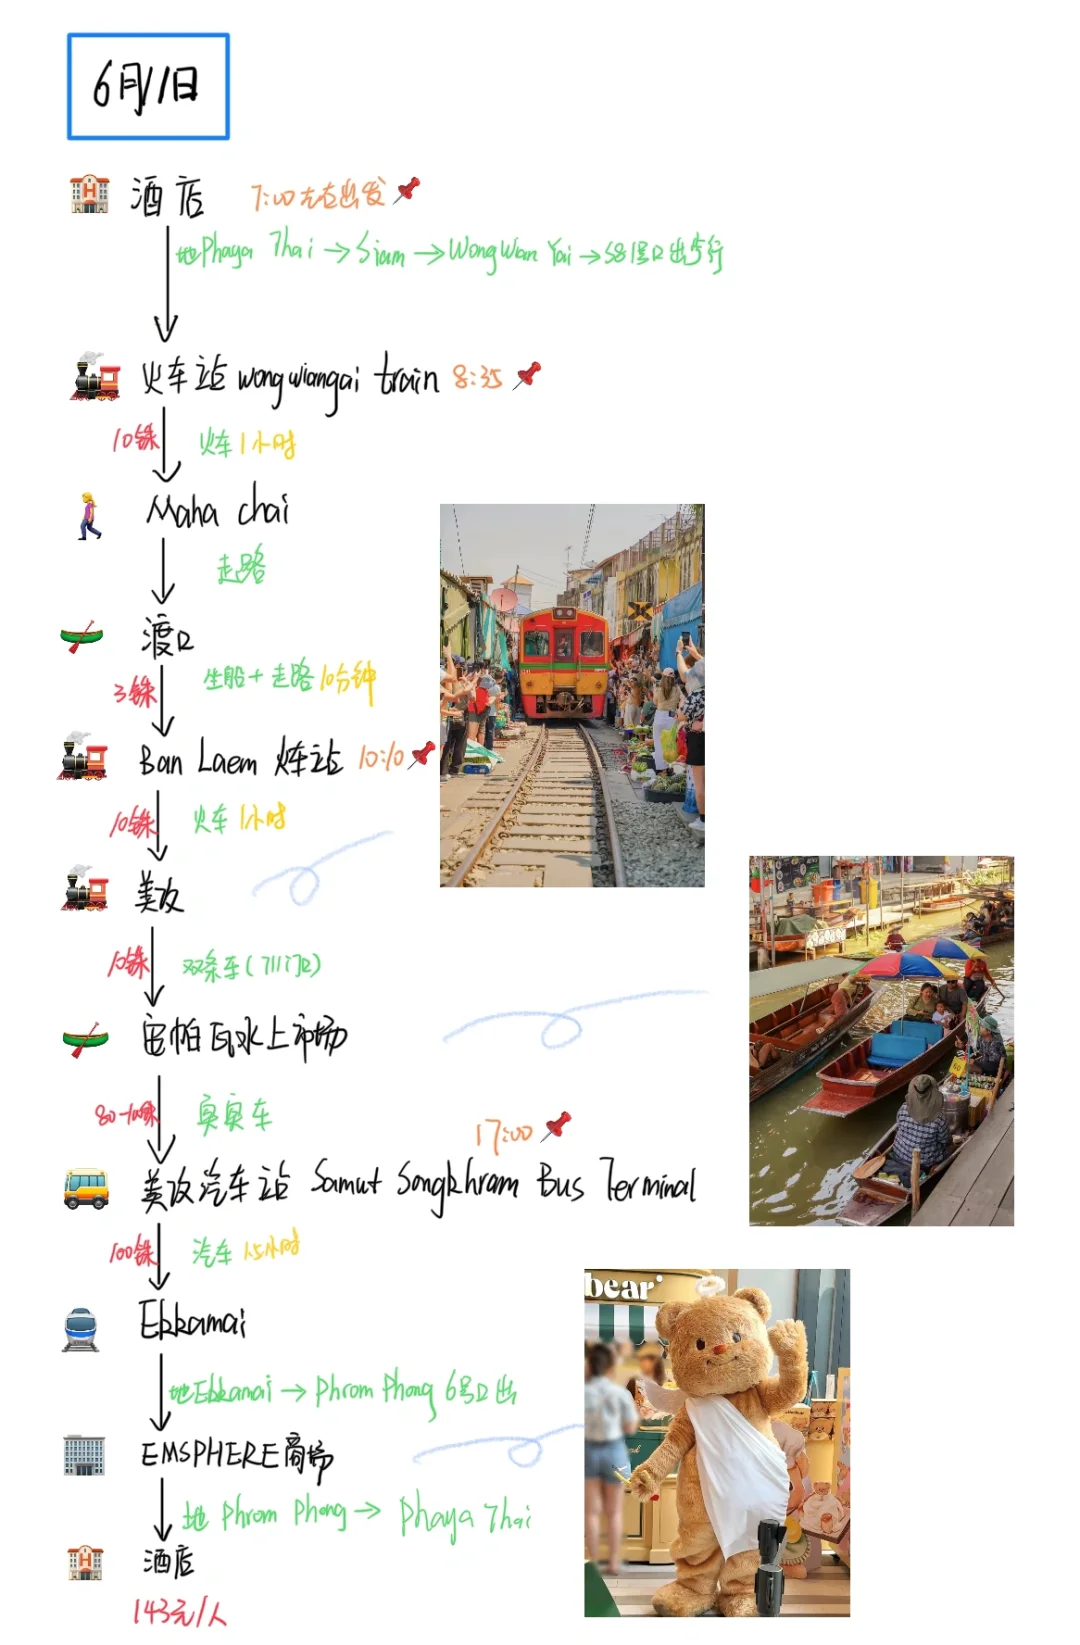 6月1日
酒店 7:00左右出发
地Phaya Thai→Siam→WongWan Yai→S8 1号口出步行
火车站wongwiangai train 8:35
10铢 火车1小时
Maha chai
走路
渡口
3铢 坐船+走路10分钟
Ban Laem 火车站 10:10
10铢 火车1小时
美攻
10铢 双条车(711门口)
安帕瓦水上市场
80-100铢 奥奥车
17:00
美攻汽车站 Samut Songkhram Bus Terminal
100铢 汽车1.5小时
Ekkamai
地Ekkamai→Phrom Phong 6号口出
EMSPHERE商场
地 Phrom Phong→Phaya Thai
酒店
143元/人
bear